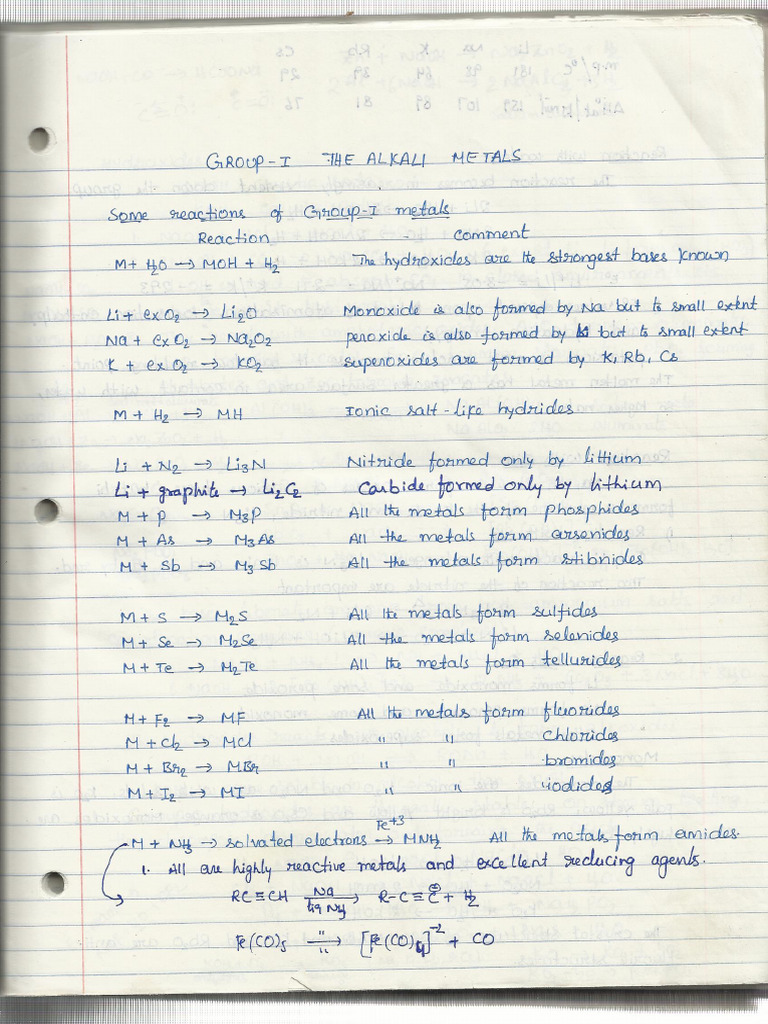 GROUP-I THE ALKALI METALS
Some reactions of Group-I metals
Reaction comment
M + H₂O → MOH + H₂ The hydroxides are the strongest bases known
Li + ex O₂ → Li₂O Monoxide is also formed by Na but to small extent
Na + ex O₂ → Na₂O₂ peroxide is also formed by but to small extent
K + ex O₂ → KO₂ superoxides are formed by K, Rb, Cs
M + H₂ → MH Ionic salt-like hydrides
Li + N₂ → Li₃N Nitride formed only by littium
Li + graphite → Li₂C₂ Carbide formed only by lithium
M + P → M₃P All the metals form phosphides
M + As → M₃As All the metals form arsenides
M + Sb → M₃Sb All the metals form stibnides
M + S → M₂S All the metals form sulfides
M + Se → M₂Se All the metals form selenides
M + Te → M₂Te All the metals form tellurides
M + F₂ → MF All the metals form fluorides
M + Cl₂ → MCl " " chlorides
M + Br₂ → MBr " " bromides
M + I₂ → MI " " iodides
Fe⁺³
M + NH₃ → solvated electrons → MNH₂ All the metals form amides.
1. All are highly reactive metals and excellent reducing agents.
RC≡CH Na/liq NH₃ → R-C≡C + H₂
Fe(CO)₅ "/" → [Fe(CO)₄]⁻² + CO